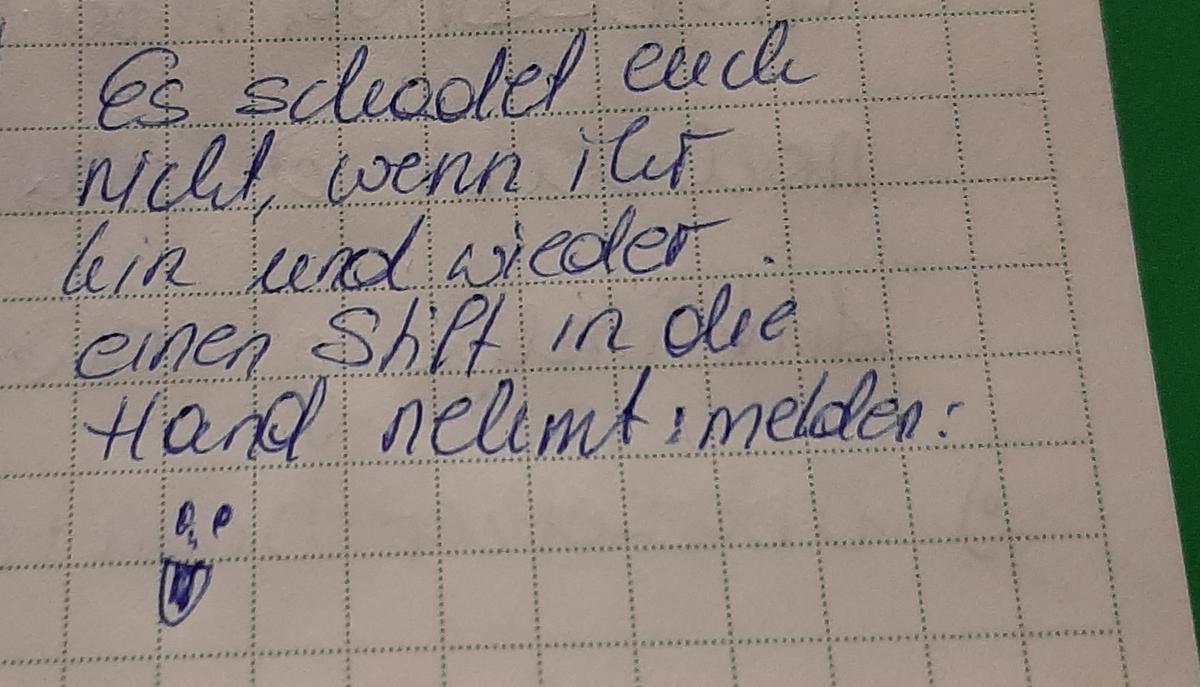 Es schadet euch
nicht, wenn ihr
hin und wieder.
einen Stift in die
Hand nehmt: melden: